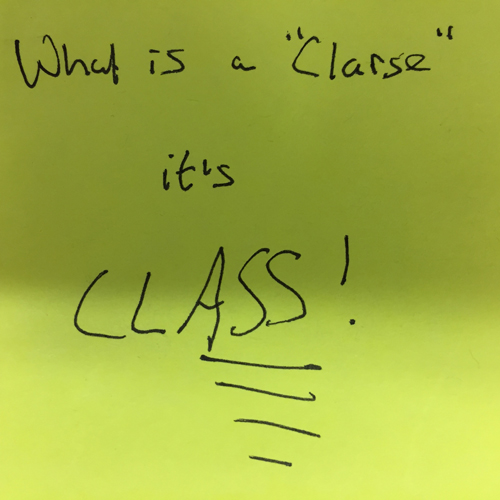 What is a "Clarse"
it's
CLASS!